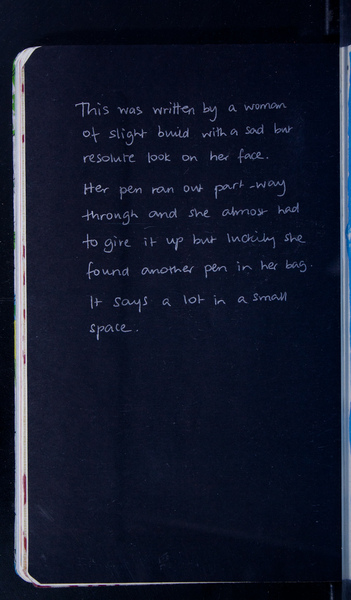 This was written by a woman
of slight build with a sad but
resolute look on her face.
Her pen ran out part-way
through and she almost had
to give it up but luckily she
found another pen in her bag.
It says a lot in a small
space.